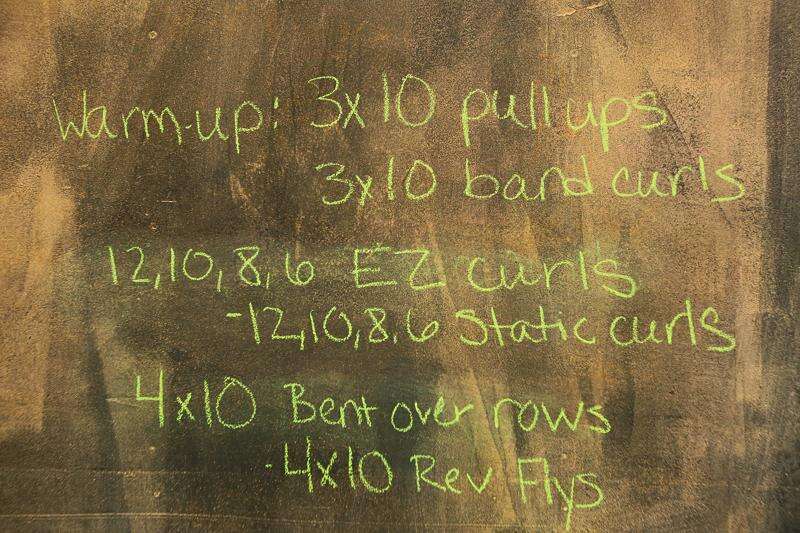 Warm-up: 3x10 pull ups
3x10 band curls
12,10,8,6 EZ curls
-12,10,8,6 Static curls
4x10 Bent over rows
-4x10 Rev Flys